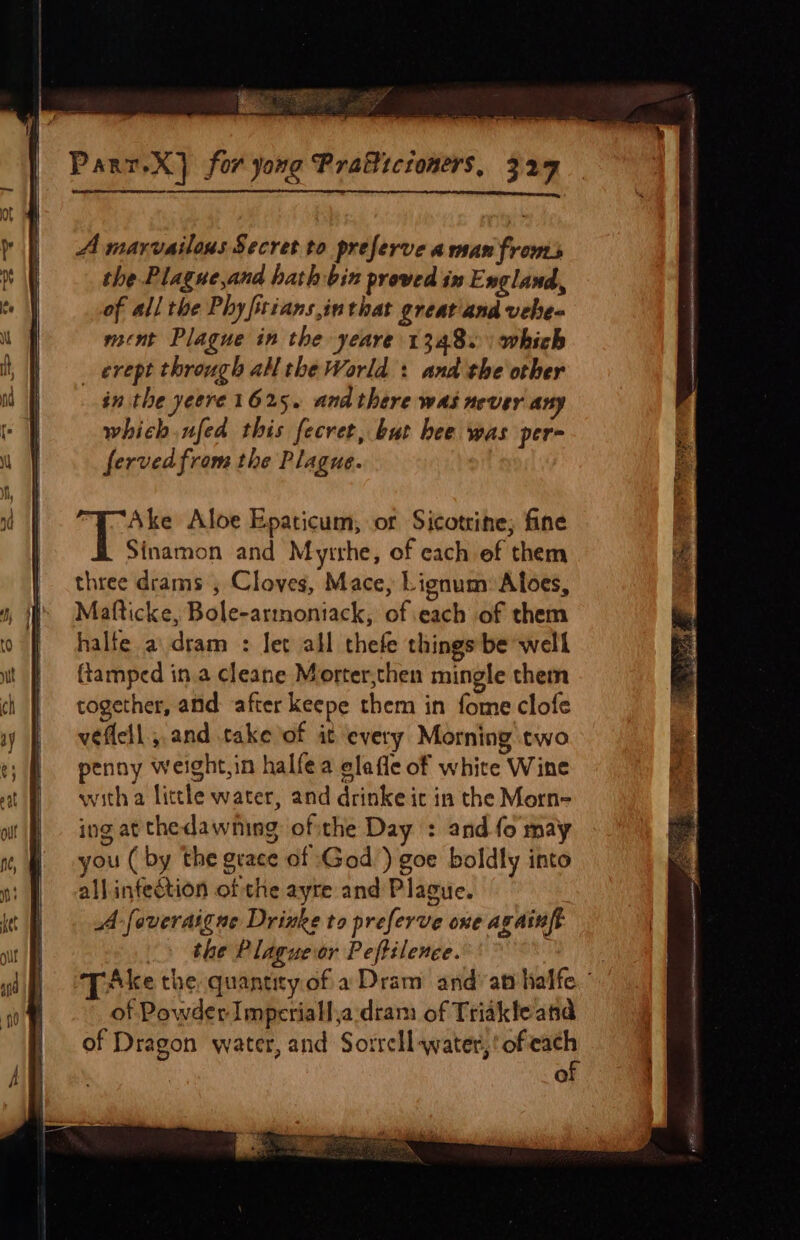 Part.X} for yong Practicioners, 327
A marvailous Secret to preſerve a man from
the Plague, and hath bin proved in England,
of all the Phyſitians, in that great and vehe-
ment Plague in the yeare 1348. which
crept through all the World : and the other
in the yeere 1625. and there was never any
which uſed this ſecret, but hee was per-
ſerved from the Plague.
TAke Aloe Epaticum, or Sicotrine, fine
Sinamon and Myrrhe, of each of them
three drams, Cloves, Mace, Lignum Aloes,
Maſticke, Bole-armoniack, of each of them
halfe a dram : let all theſe things be well
ſtamped in a cleane Morter, then mingle them
together, and after keepe them in ſome cloſe
veſſell, and take of it every Morning two
penny weight, in halfe a glaſſe of white Wine
with a little water, and drinke it in the Morn-
ing at the dawning of the Day : and ſo may
you ( by the grace of God ) goe boldly into
all infection of the ayre and Plague.
A ſoveraigne Drinke to preſerve one againſt
the Plague or Peſtilence.
TAke the quantity of a Dram and an halfe
of Powder Imperiall, a dram of Triakle and
of Dragon water, and Sorrell water, of each
of